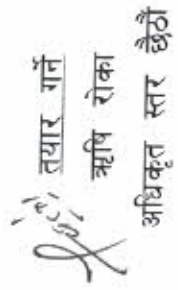 तयार गर्ने
ऋषि रोका
अधिकृत स्तर छैठौं